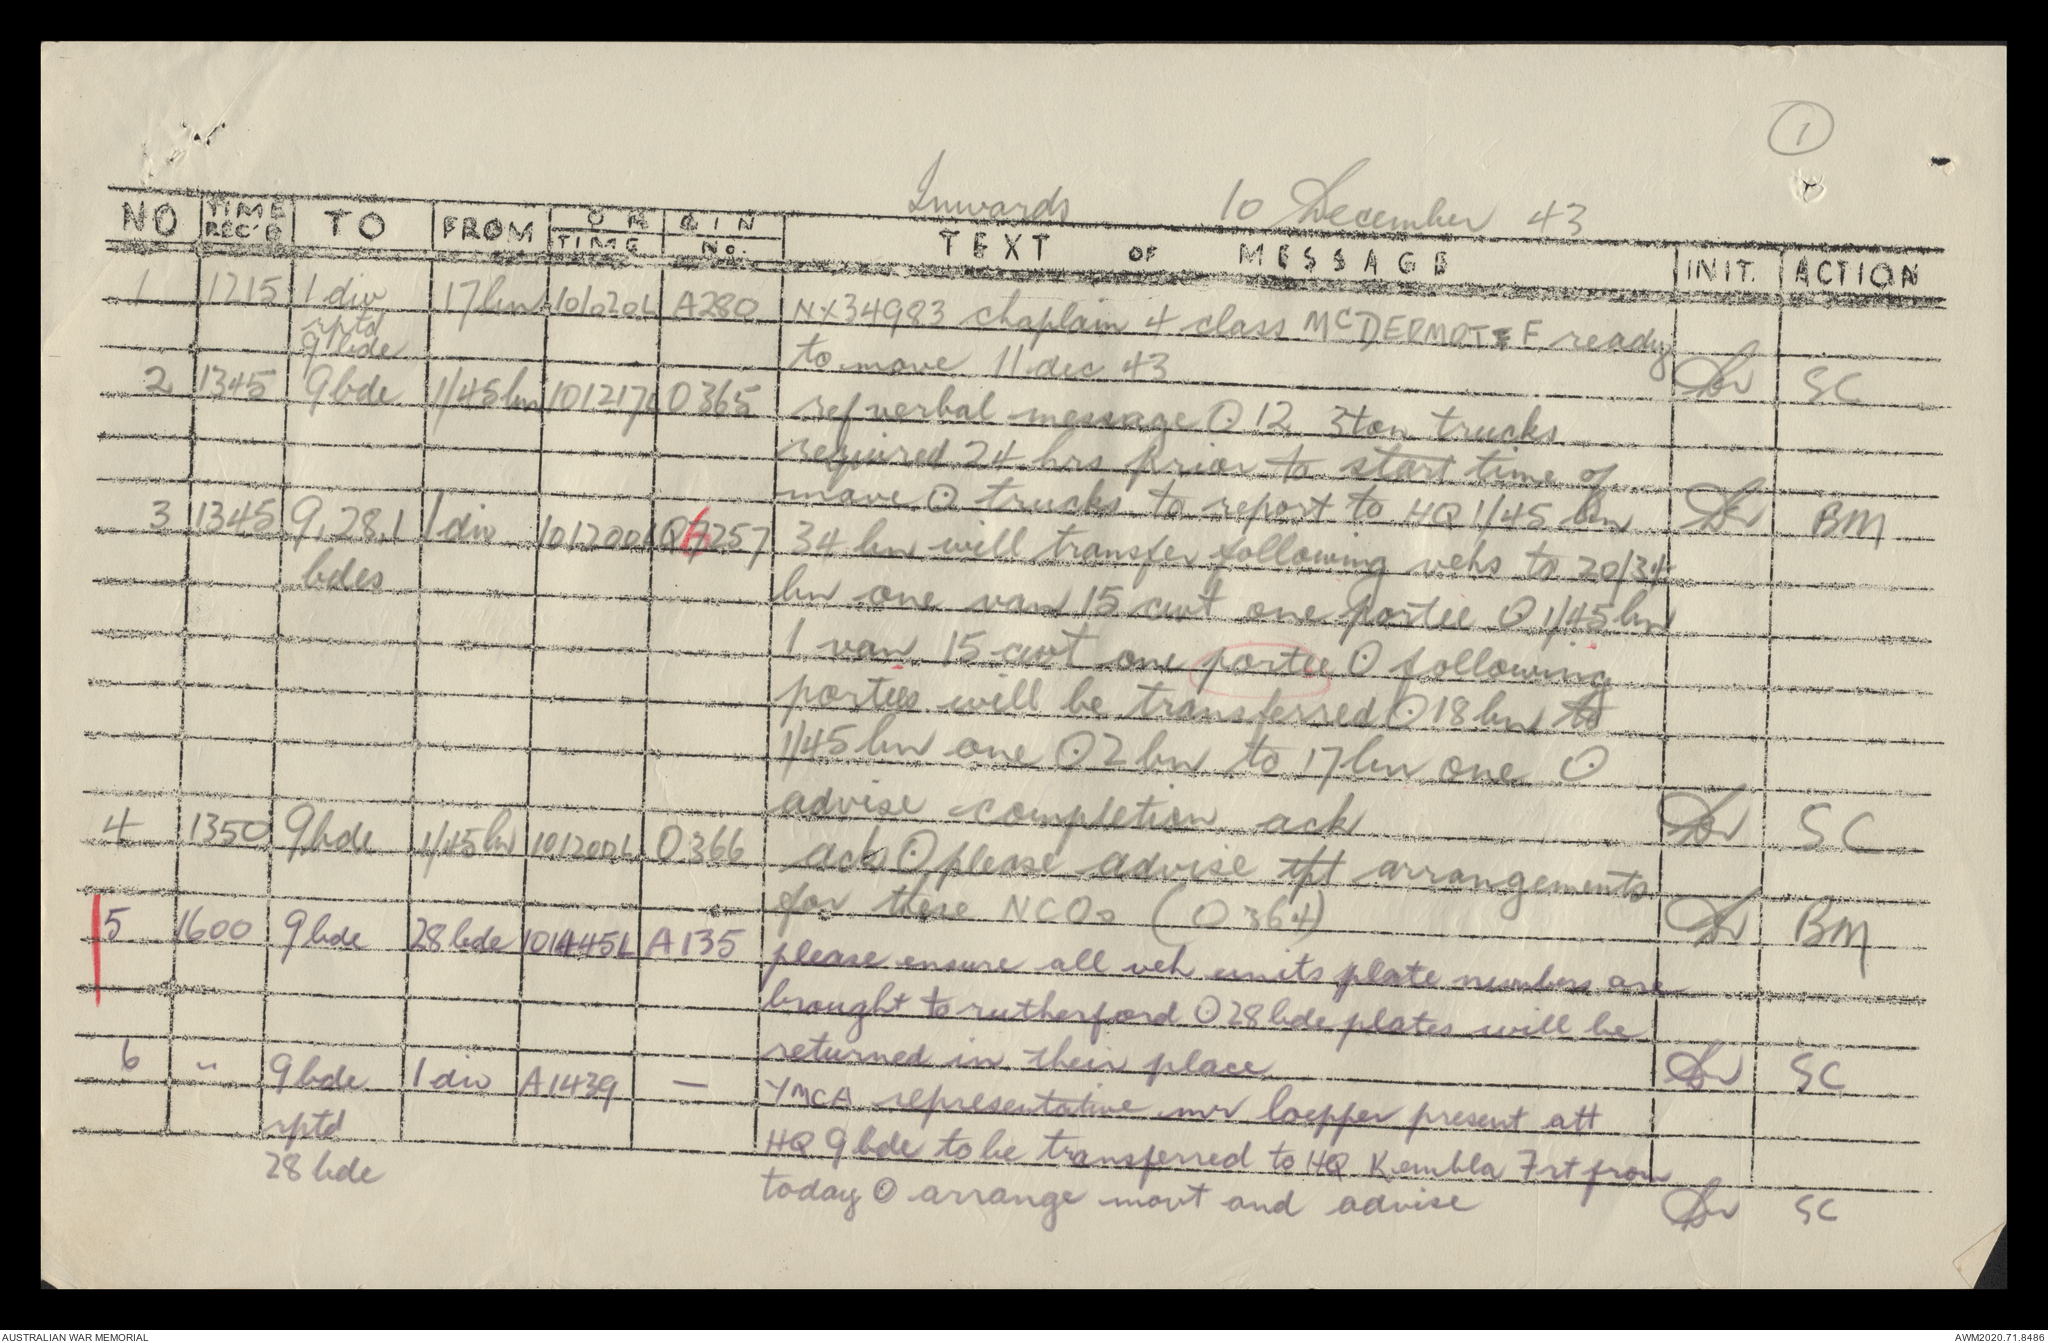 1
Inwards 10 December 43
NO TIME REC'D TO FROM ORIGIN TIME No. TEXT OF MESSAGE INIT. ACTION
1 1215 1 div 17 bn 101020L A280 NX34983 chaplain 4 class McDERMOTT F ready
rptd
9 bde to move 11 dec 43 SC
2 1345 9 bde 1/45 bn 101217L O365 ref verbal message ⊙ 12 3ton trucks
required 24 hrs prior to start time of
move ⊙ trucks to report to HQ 1/45 bn BM
3 1345 9,28,1 1 div 101200L Q6257 34 bn will transfer following vehs to 20/34
bdes bn one van 15 cwt one portee ⊙ 1/45 bn
1 van 15 cwt one portee ⊙ following
portees will be transferred ⊙ 18 bn to
1/45 bn one ⊙ 2 bn to 17 bn one ⊙
advise completion ack SC
4 1350 9 bde 1/45 bn 101200L O366 ack ⊙ please advise tpt arrangements
for these NCOs (O364) BM
5 1600 9 bde 28 bde 101445L A135 please ensure all veh units plate numbers are
brought to rutherford ⊙ 28 bde plates will be
returned in their place SC
6 " 9 bde 1 div A1439 — YMCA representative mr loepper present att
rptd HQ 9 bde to be transferred to HQ Kembla Frt from
28 bde today ⊙ arrange movt and advise SC
AUSTRALIAN WAR MEMORIAL AWM2020.71.8486